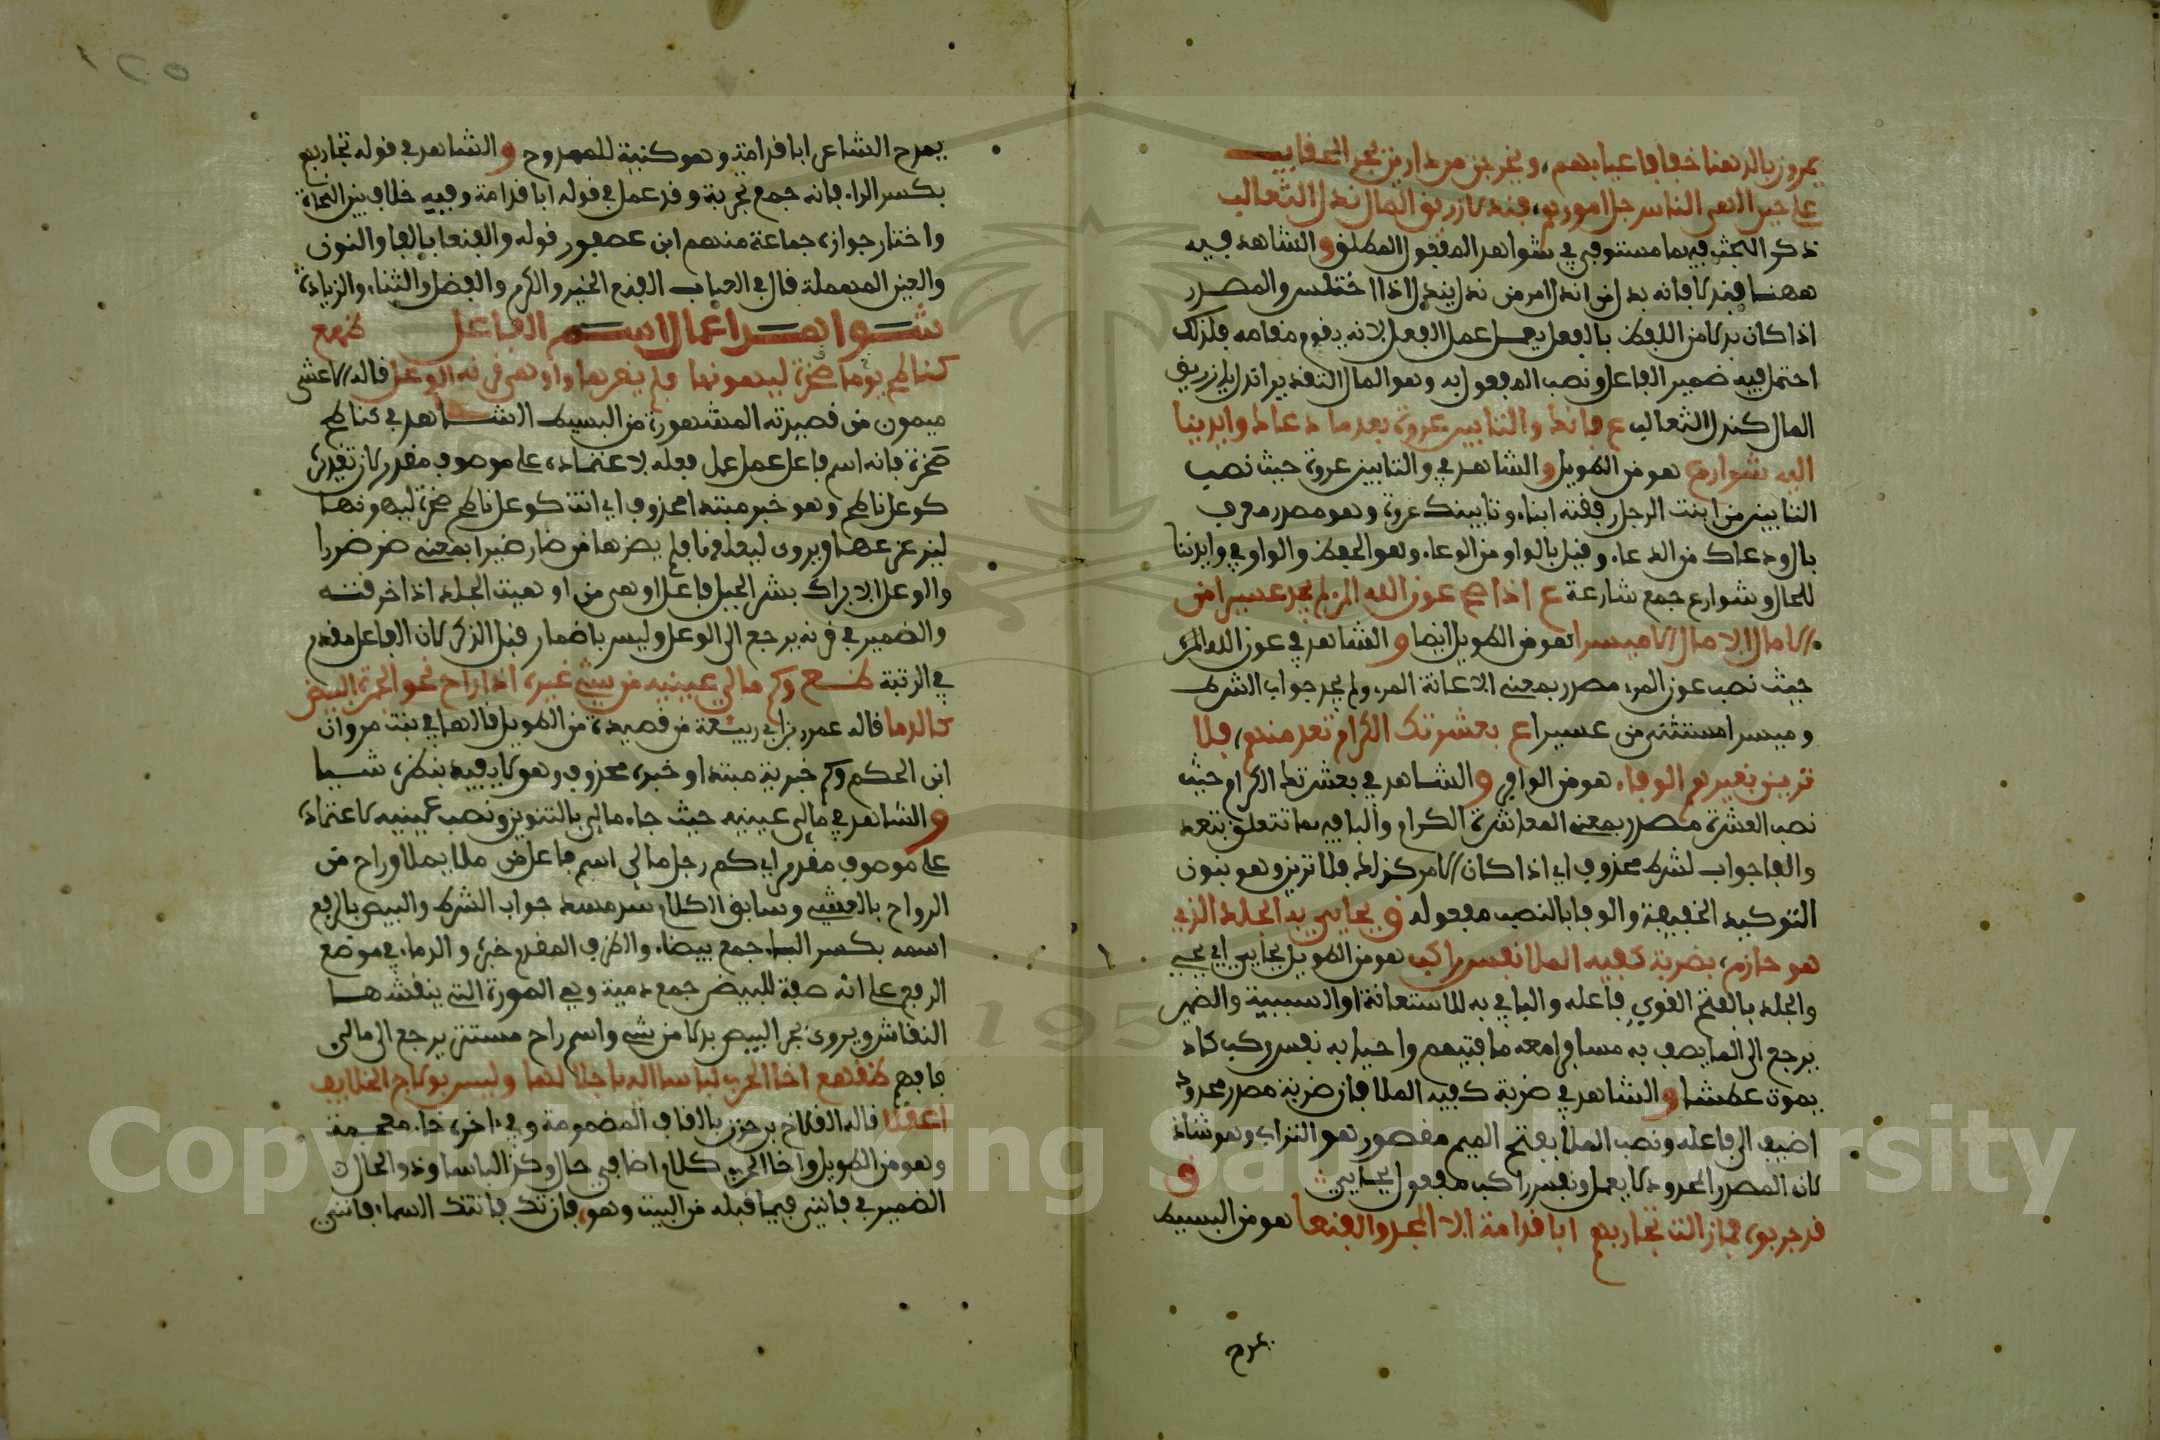 يمرون بالدهنا خفافا عيابهم، ويخرجن من دارين بجر الحقايب
على حين الهى الناس جل امورهم، فندلا زريق المال ندل الثعالب
ذكر البحث فيهما مستوفى في شواهد المفعول المطلق والشاهد فيه
ههنا فندلا فانه بدل من اندل امر من ندل يندل اذا اختلس والمصدر
اذا كان بدلا من اللفظ بالفعل يعمل عمل الفعل لانه يقوم مقامه فلذلك
احتمل فيه ضمير الفاعل ونصب المفعول به وهو المال التقدير اندل يا زريق
المال كندل الثعالب ع فانك والتابين عروة بعد ما دعاك وايدينا
اليه شوارع هو من الطويل والشاهد في والتابين عروة حيث نصب
التابين من ابنت الرجل رقفته ابناء وتابينك عروة وهو مصدر معرف
بال ودعاك من الدعاء وقيل بالواو من الوعاء وهو الحفظ والواو في وايدينا
للحال وشوارع جمع شارعة ع اذا صح عون الله المرء لم يجد عسيرا من
الامال الا ميسرا هو من الطويل ايضا والشاهد في عون الله المرء
حيث نصب عون المرء مصدر بمعنى الاعانة المرء ولم يجد جواب الشرط
وميسرا مستثنى من عسيرا ع بعشرتك الكرام تعد منهم، فلا
ترين لغيرهم الوفاء هو من الوافر والشاهد في بعشرتك الكرام حيث
نصب العشرة مصدر بمعنى المعاشرة الكرام والبا فيه بما تتعلق بتعد
والفا جواب لشرط محذوف اي اذا كان الامر كذلك فلا ترين وهو بنون
التوكيد الخفيفة والوفا بالنصب مفعوله ق يحايي به الجلد الذي
هو حازم، بضربة كفيه الملا نفس راكب هو من الطويل يحايي اي يحيي
والجلد بالفتح القوي فاعله والبا في به للاستعانة او للسببية والضمير
يرجع الى الما يصف به مسافرا معه ما فتيمم واحيا به نفس ركب كاد
يموت عطشا والشاهد في ضربة كفيه الملا فان ضربة مصدر محدود
اضيف الى فاعله ونصب الملا بفتح الميم مقصور هو التراب وهو شاذ
لان المصدر المحدود لا يعمل ونفس راكب مفعول يحايي ق
قد جربوه فما زالت تجاربهم ابا قدامة الا المجد والفنعا هو من البسيط
يمدح
يمدح الشاعر ابا قدامة وهو كنية للممدوح والشاهد في قوله تجاربهم
بكسر الراء فانه جمع تجربة وقد عمل في قوله ابا قدامة وفيه خلاف بين النحاة
واختار جوازه جماعة منهم ابن عصفور قوله والفنعا بالفا والنون
والعين المهملة قال في العباب الفنع الخير والكرم والفضل والثناء والزيادة
شواهد اعمال اسم الفاعل ظهع
كناطح يوما صخرة ليوهنها فلم يضرها واوهى قرنه الوعل قاله الاعشى
ميمون من قصيدته المشهورة من البسيط الشاهد في كناطح
صخرة فانه اسم فاعل عمل عمل فعله لاعتماده على موصوف مقدر لان تقديره
كوعل ناطح وهو خبر مبتدا محذوف اي انت كوعل ناطح صخرة ليوهنها
ليزعزعها ويروى ليفلقها فلم يضرها من ضار ضيرا بمعنى ضر ضررا
والوعل الايل بشر الجبل فاعل اوهى من اوهيت الجلد اذا خرقته
والضمير في قرنه يرجع الى الوعل وليس باضمار قبل الذكر لان الفاعل مقدم
في الرتبة ظع وكم مالئ عينيه من شيء غيره، اذا راح نحو الجمرة البيض
كالدما قاله عمر بن ابي ربيعة من قصيدة من الطويل قالها في بنت مروان
ابن الحكم وكم خبرية مبتدا وخبره محذوف وهو لا يفيده بنظره شيا
والشاهد في مالئ عينيه حيث جاء مالئ بالتنوين ونصب عينيه لاعتماده
على موصوف مقدر اي كم رجل مالئ اسم فاعل من ملا يملا وراح من
الرواح بالعشي وسابق الكلام سد مسد جواب الشرط والبيض بالرفع
اسمه بكسر البا جمع بيضاء والظرف المقدم خبره والدما في موضع
الرفع على انه صفة للبيض جمع دمية وهي الصورة التي ينقشها
النقاش ويروى بجر البيض بدلا من شيء واسم راح مستتر يرجع الى مالئ
فافهم ظقهع اخا الحرب لباسا اليها جلالها وليس بولاج الخوالف
اعقلا قاله القلاخ بن حزن بالقاف المضمومة وفي اخره خاء معجمة
وهو من الطويل واخا الحرب كلام اضافي حال وكذا لباسا وذو الحال
الضمير في فانني فيما قبله من البيت وهو، فان تك فاتتك السماء فانني